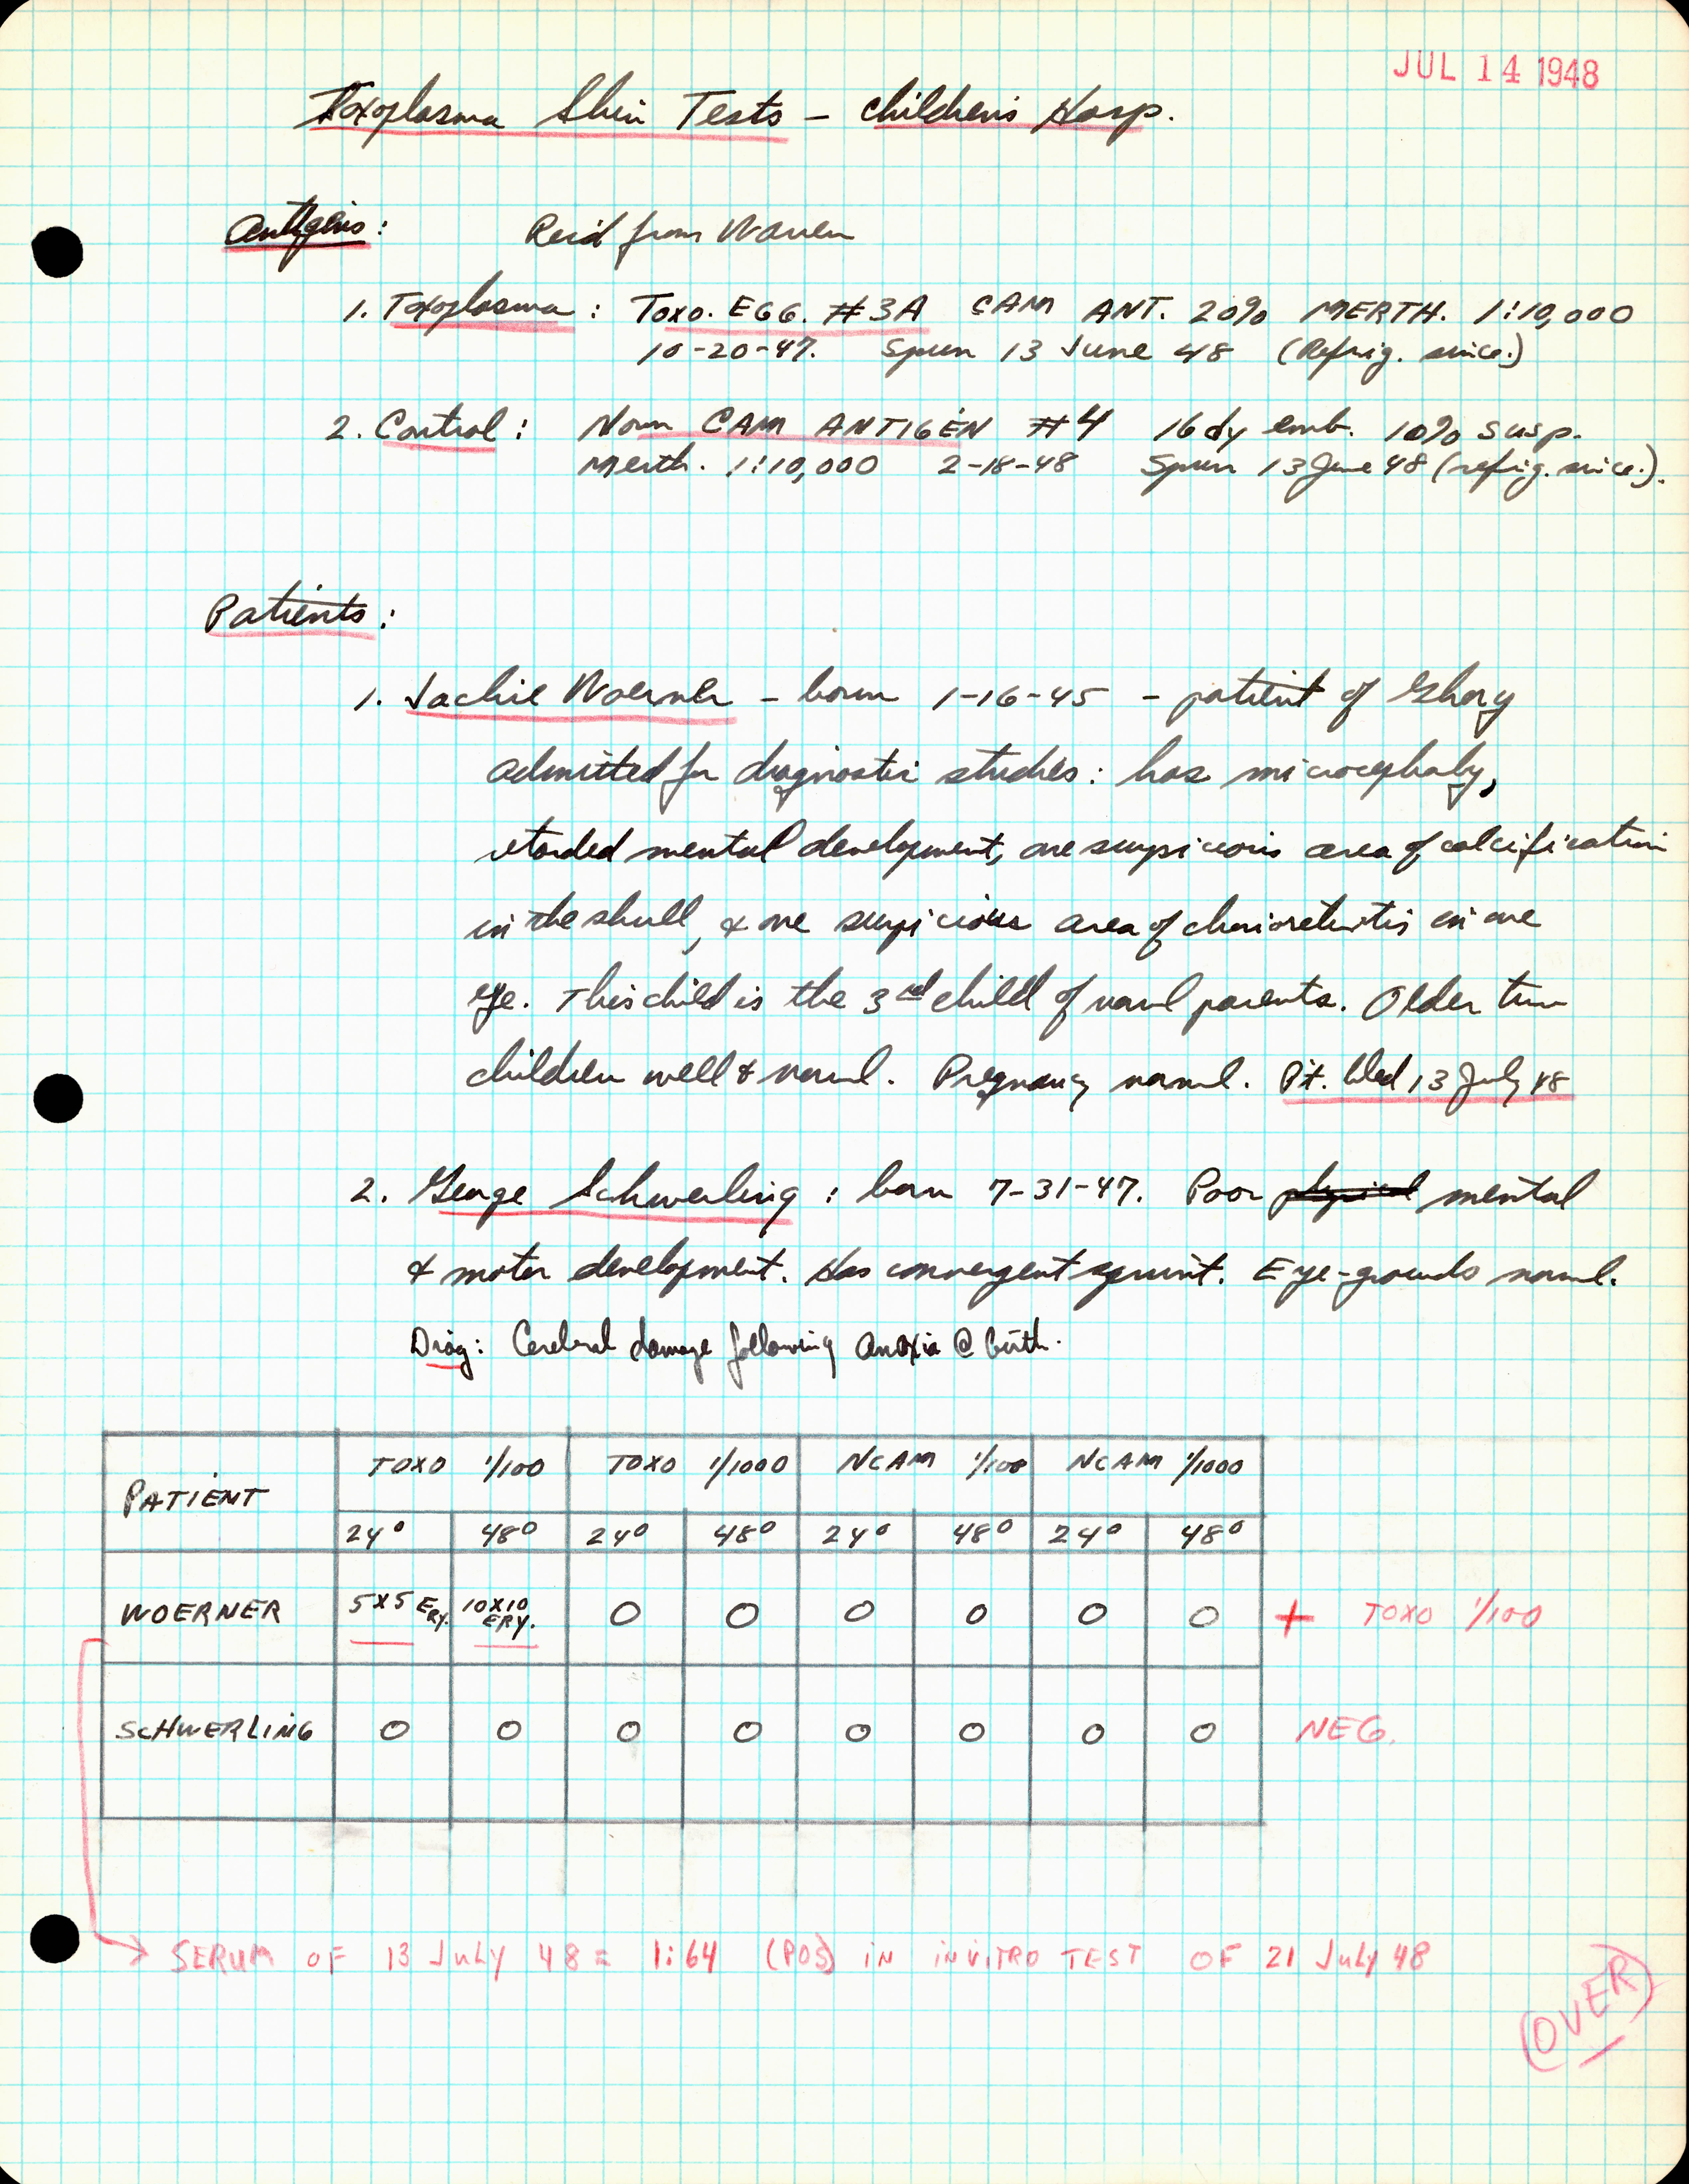 JUL 14 1948
Toxoplasma Skin Tests - Children's Hosp.
Antigens: Rec'd from Warren
1. Toxoplasma: TOXO. EGG. #3A CAM ANT. 20% MERTH. 1:10,000
10-20-47. Spun 13 June 48 (Refrig. since.)
2. Control: Norm CAM ANTIGEN #4 16 dy emb. 10% susp.
Merth. 1:10,000 2-18-48 Spun 13 June 48 (refrig. since.).
Patients:
1. Jackie Woerner - born 1-16-45 - patient of
admitted for diagnostic studies: has microcephaly,
retarded mental development, one suspicious area of calcification
in the skull, & one suspicious area of chorioretinitis in one
eye. This child is the 3rd child of norml parents. Older two
children well & norml. Pregnancy norml. Pt. bled 13 July 48
2. George Schwerling: born 7-31-47. Poor physical mental
& motor development. Has convergent squint. Eye-grounds norml.
Diag: Cerebral damage following Anoxia @ birth.
PATIENT TOXO 1/100 TOXO 1/1000 NCAM 1/100 NCAM 1/1000
24° 48° 24° 48° 24° 48° 24° 48°
WOERNER 5X5 ERY. 10X10 ERY. O O O O O O + TOXO 1/100
SCHWERLING O O O O O O O O NEG.
→ SERUM OF 13 JULY 48 = 1:64 (POS) IN INVITRO TEST OF 21 JULY 48
(OVER)